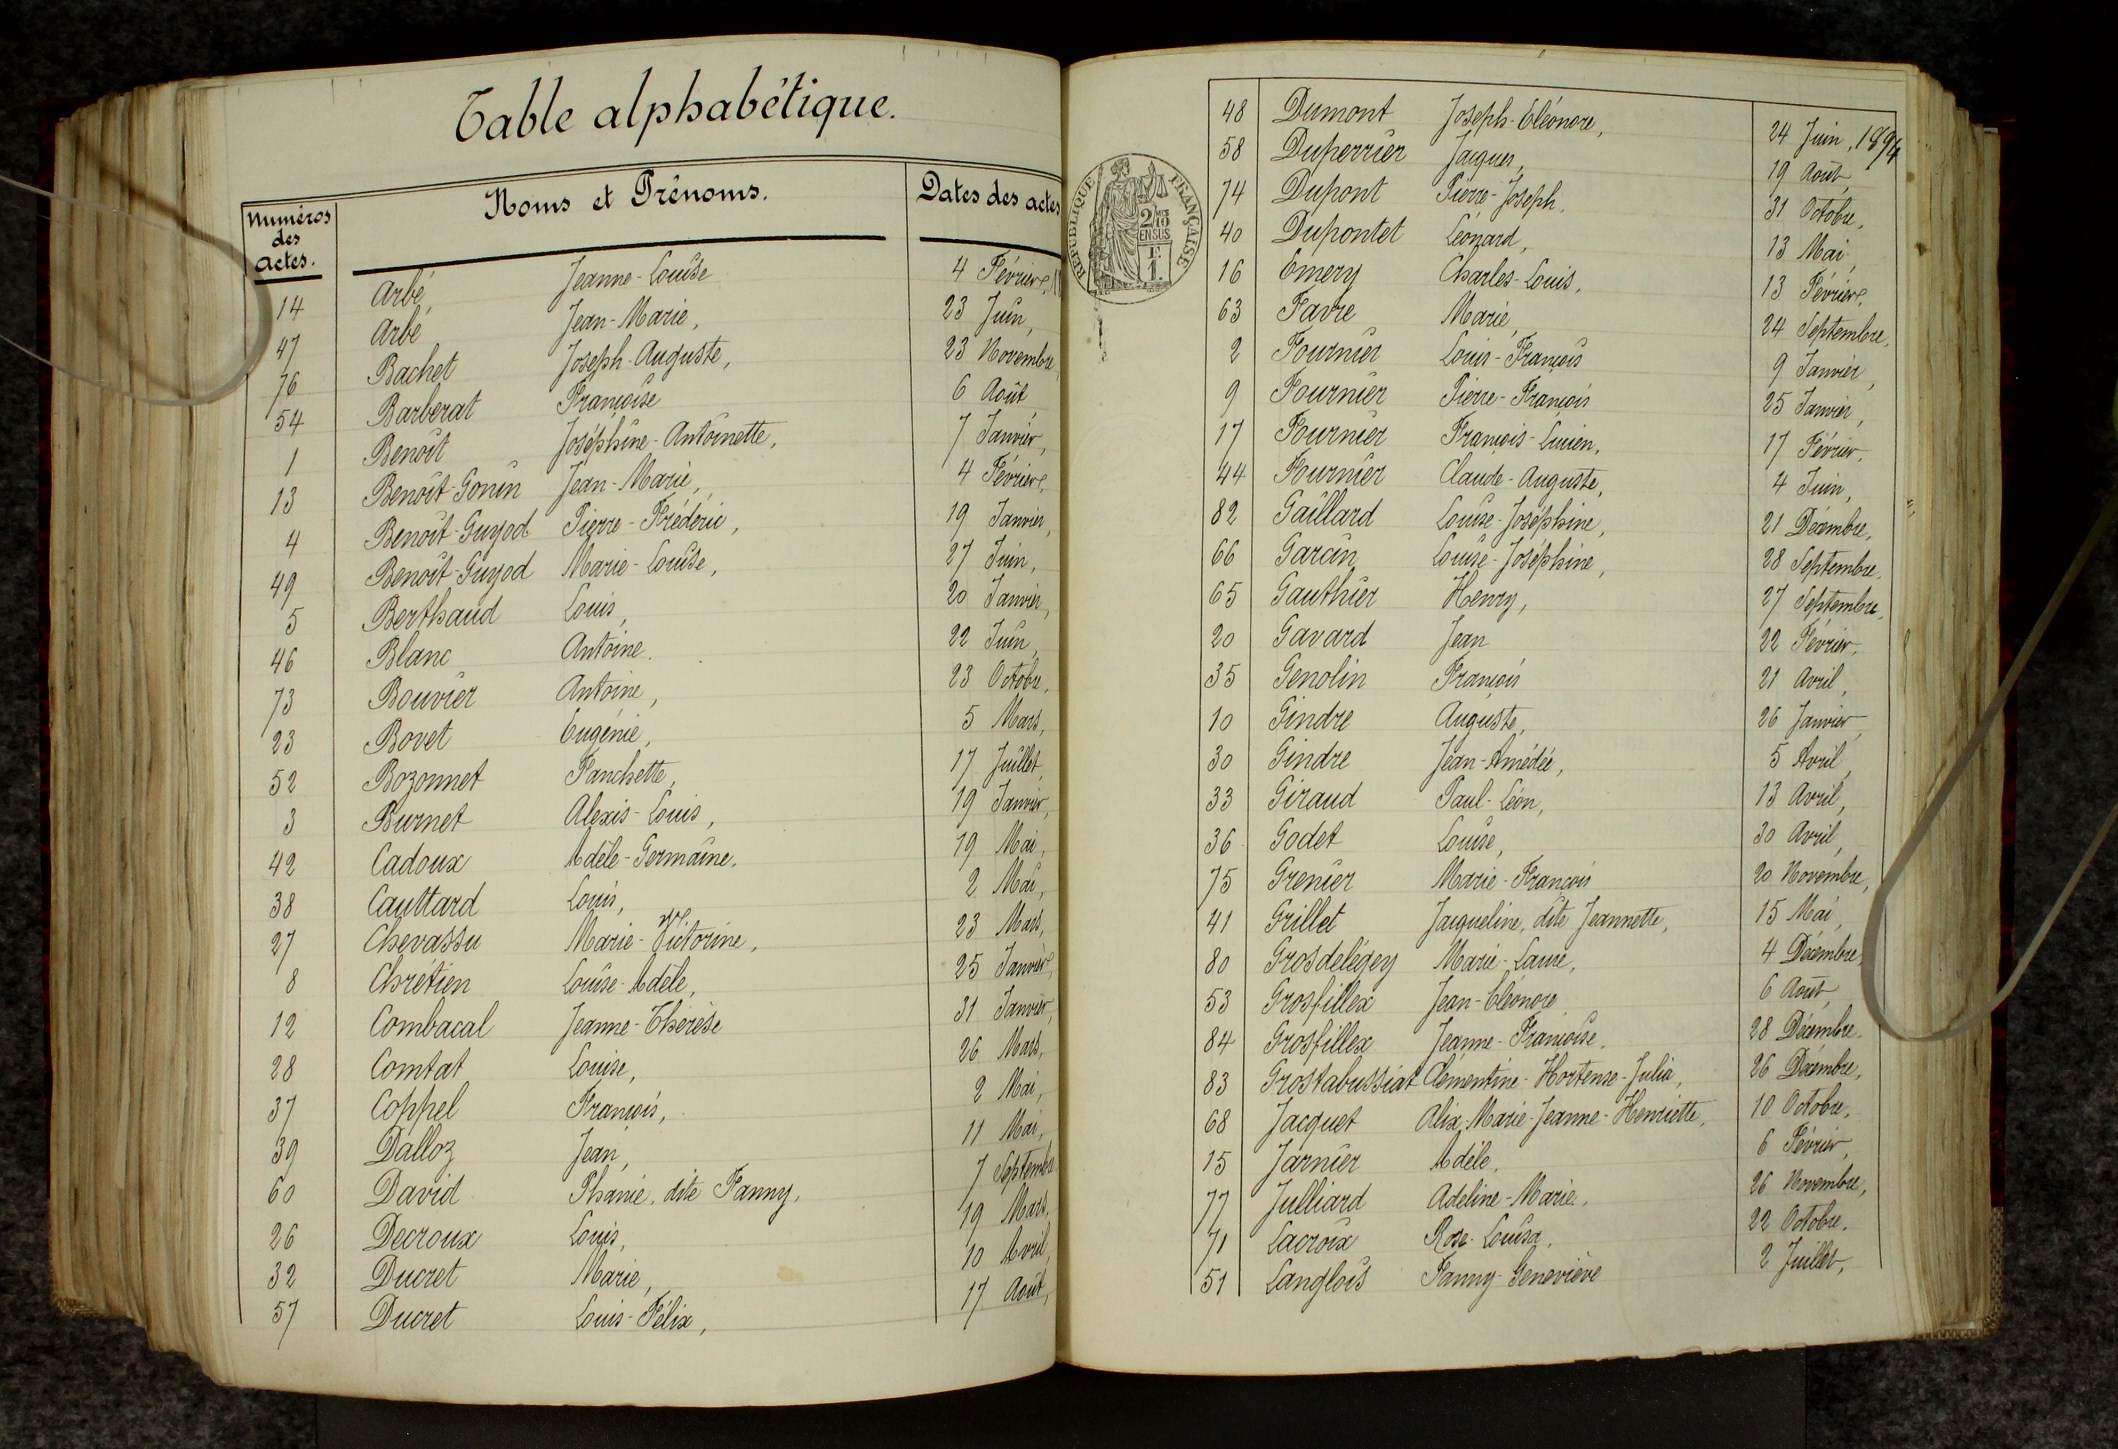 Table alphabétique.
Numéros des actes. Noms et Prénoms. Dates des actes
14 Arbé, Jeanne-Louise 4 Février,
47 Arbé Jean-Marie, 23 Juin,
76 Bachet Joseph-Auguste, 23 Novembre
54 Barberat Françoise 6 Août
1 Benoît Joséphine-Antoinette, 7 Janvier,
13 Benoît-Gonin Jean-Marie, 4 Février,
4 Benoît-Guyod Pierre-Frédéric, 19 Janvier,
49 Benoît-Guyod Marie-Louise, 27 Juin,
5 Berthaud Louis, 20 Janvier,
46 Blanc Antoine. 22 Juin,
73 Bouvier Antoine, 23 Octobre,
23 Bovet Eugénie, 5 Mars,
52 Bozonnet Fanchette, 17 Juillet,
3 Burnet Alexis-Louis, 19 Janvier,
42 Cadoux Adèle-Germaine, 19 Mai,
38 Cauttard Louis, 2 Mai,
27 Chevassu Marie-Victorine, 23 Mars,
8 Chrétien Louise-Adèle, 25 Janvier,
12 Combacal Jeanne-Thérèse 31 Janvier,
28 Comtat Louise, 26 Mars,
37 Coppel François, 2 Mai,
39 Dalloz Jean, 11 Mai,
60 David Phanie, dite Fanny, 7 Septembre
26 Decroux Louis, 19 Mars,
32 Ducret Marie, 10 Avril,
57 Ducret Louis-Félix, 17 Août,
RÉPUBLIQUE FRANÇAISE
2/10
EN SUS
1F.
48 Dumont Joseph-Eléonore, 24 Juin, 1894
58 Duperrier Jacques, 19 Août,
74 Dupont Pierre-Joseph, 31 Octobre,
40 Dupontet Léonard, 13 Mai,
16 Emery Charles-Louis, 13 Février,
63 Favre Marie, 24 Septembre,
2 Fournier Louis-François 9 Janvier,
9 Fournier Pierre-François 25 Janvier,
17 Fournier François-Lucien, 17 Février,
44 Fournier Claude-Auguste, 4 Juin,
82 Gaillard Louise-Joséphine, 21 Décembre,
66 Garcin Louise-Joséphine, 28 Septembre,
65 Gauthier Henry, 27 Septembre,
20 Gavard Jean 22 Février,
35 Genolin François 21 Avril,
10 Gindre Auguste, 26 Janvier,
30 Gindre Jean-Amédée, 5 Avril,
33 Giraud Paul-Léon, 13 Avril,
36 Godet Louise, 30 Avril,
75 Grenier Marie-François 20 Novembre,
41 Grillet Jacqueline, dite Jeannette, 15 Mai,
80 Grosdelégey Marie-Laure, 4 Décembre,
53 Grosfillex Jean-Eléonore 6 Août,
84 Grosfillex Jeanne-Françoise, 28 Décembre,
83 Grostabussiat Clémentine-Hortense-Julia, 26 Décembre,
68 Jacquet Alix-Marie-Jeanne-Henriette, 10 Octobre,
15 Jarnier Adèle, 6 Février,
77 Julliard Adeline-Marie, 26 Novembre,
71 Lacroix Rose-Louisa, 22 Octobre,
51 Langlois Fanny-Geneviève 2 Juillet,